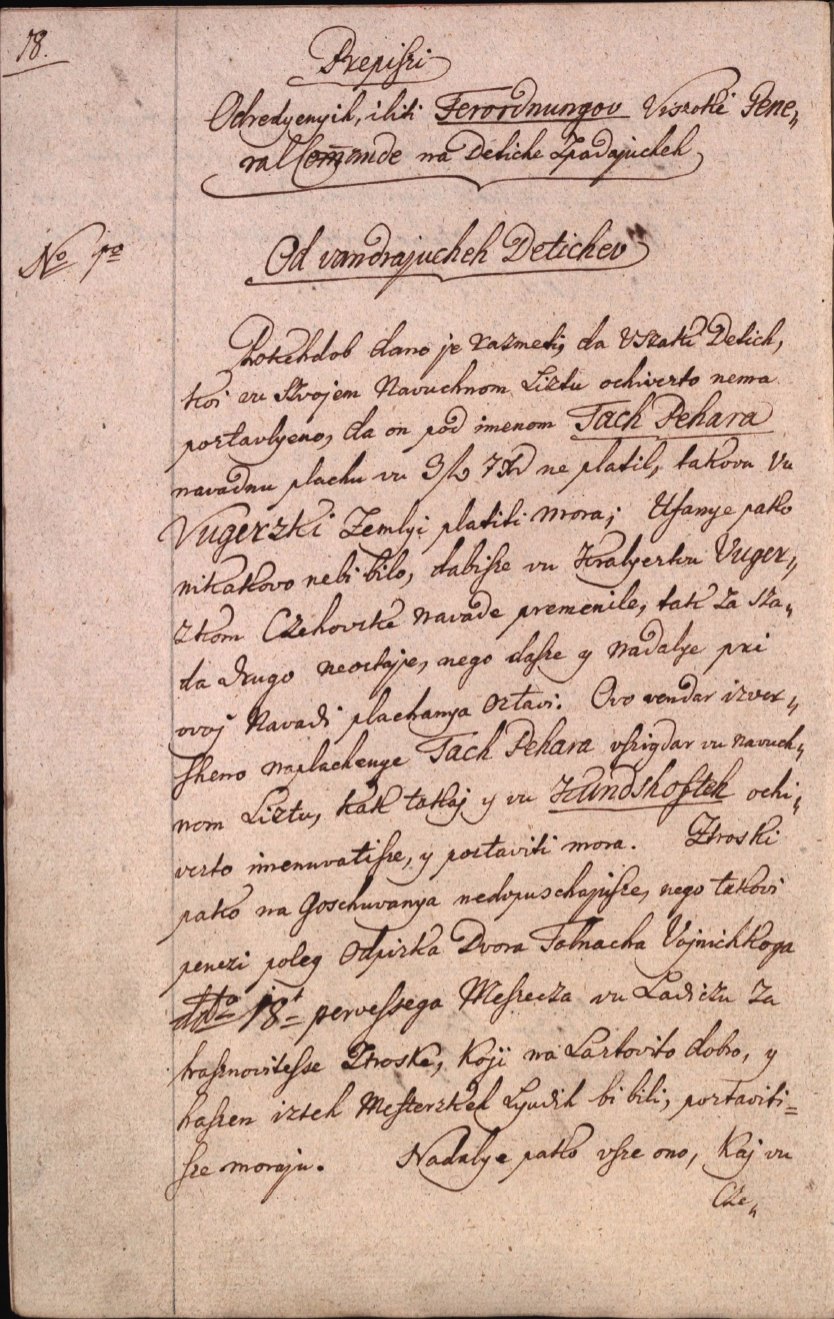 18.
Prepiszi
Odredyenyih, iliti Ferordnungov Viszoke Gene„
ral Com̅ande na Detiche Zpadajucheh
No 1o
Od vandrajucheh Detichev
dob dano je razmeti, da vszaki Detich,
koi vu szvojem Navuchnom Liztu ochiverto nema
poztavlyeno, da on pod imenom Tach Pehara
navadnu plachu vu 3 f 7 xr ne platil, takovu vu
Vugerzki Zemlyi platiti mora; Ufanye pako
nikakovo nebi bilo, dabisze vu Kralyeztvu Vuger„
zkom Czehovzke navade premenile, tak za sza„
da drugo neoztaje, nego dasze y nadalye pri
ovoj Navadi plachanya oztavi. Ovo vendar izver„
sheno naplachenye Tach Pehara vszigdar vu navuch„
nom Liztu, kak takaj y vu Kundshoftah ochi„
verto imenuvatisze, y poztaviti mora. Ztroski
pako na Goschuvanya nedopuschajusze, nego takovi
penezi poleg odpizka Dvora Tolnacha Vojnichkoga
ddto 18t pervessega Meszecza vu Ladiczu za
hasznovitesse Ztroske, koji na Laztovito dobro, y
haszen izteh Mesterzkeh Lyudih bi bili, poztaviti=
sze moraju. Nadalye pako vsze ono, kaj vu
Cze„